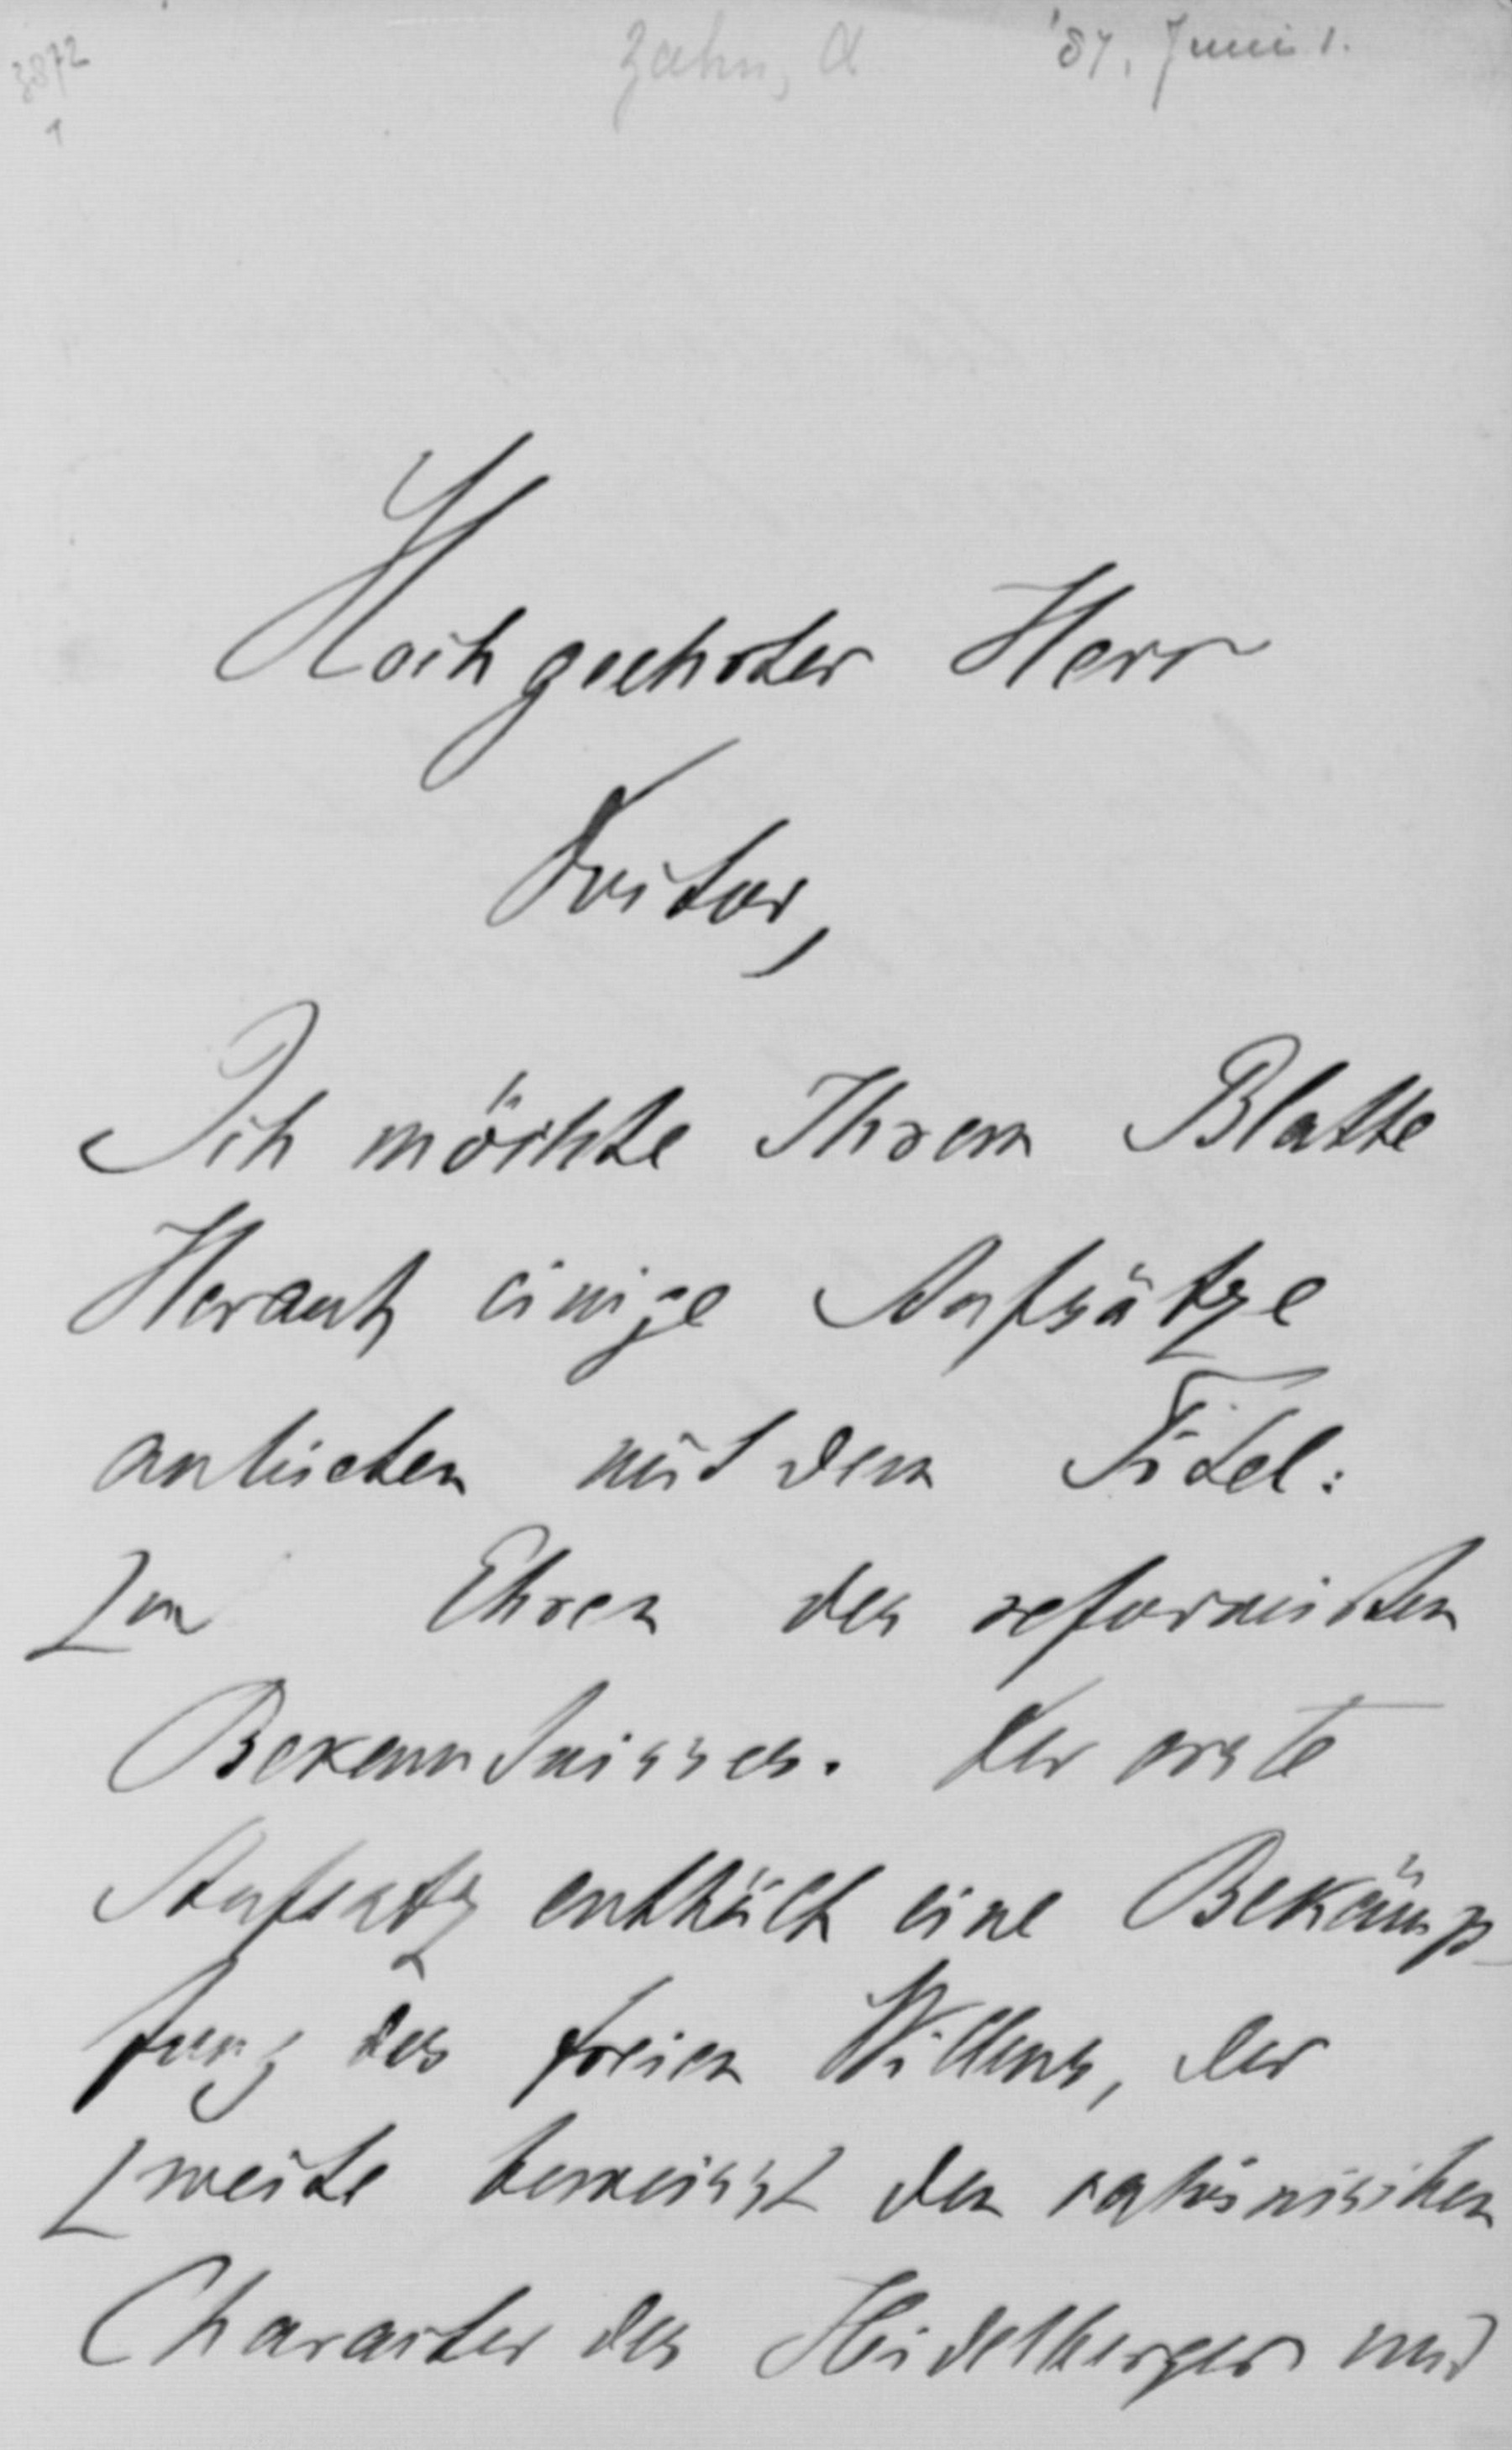 3872
1
Zahn, A
'87, Juni 1.
Hochgeehrter Herr
Doctor,
Ich möchte Ihrem Blatte
Heraut einige Aufsätze
anbieten mit dem Titel:
Zu Ehren des reformirten
Bekenntnisses. Der erste
Aufsatz enthält eine Bekämp-
fung des freien Willens, der
zweite beweisst den calvinischen
Character des Heidelberger und